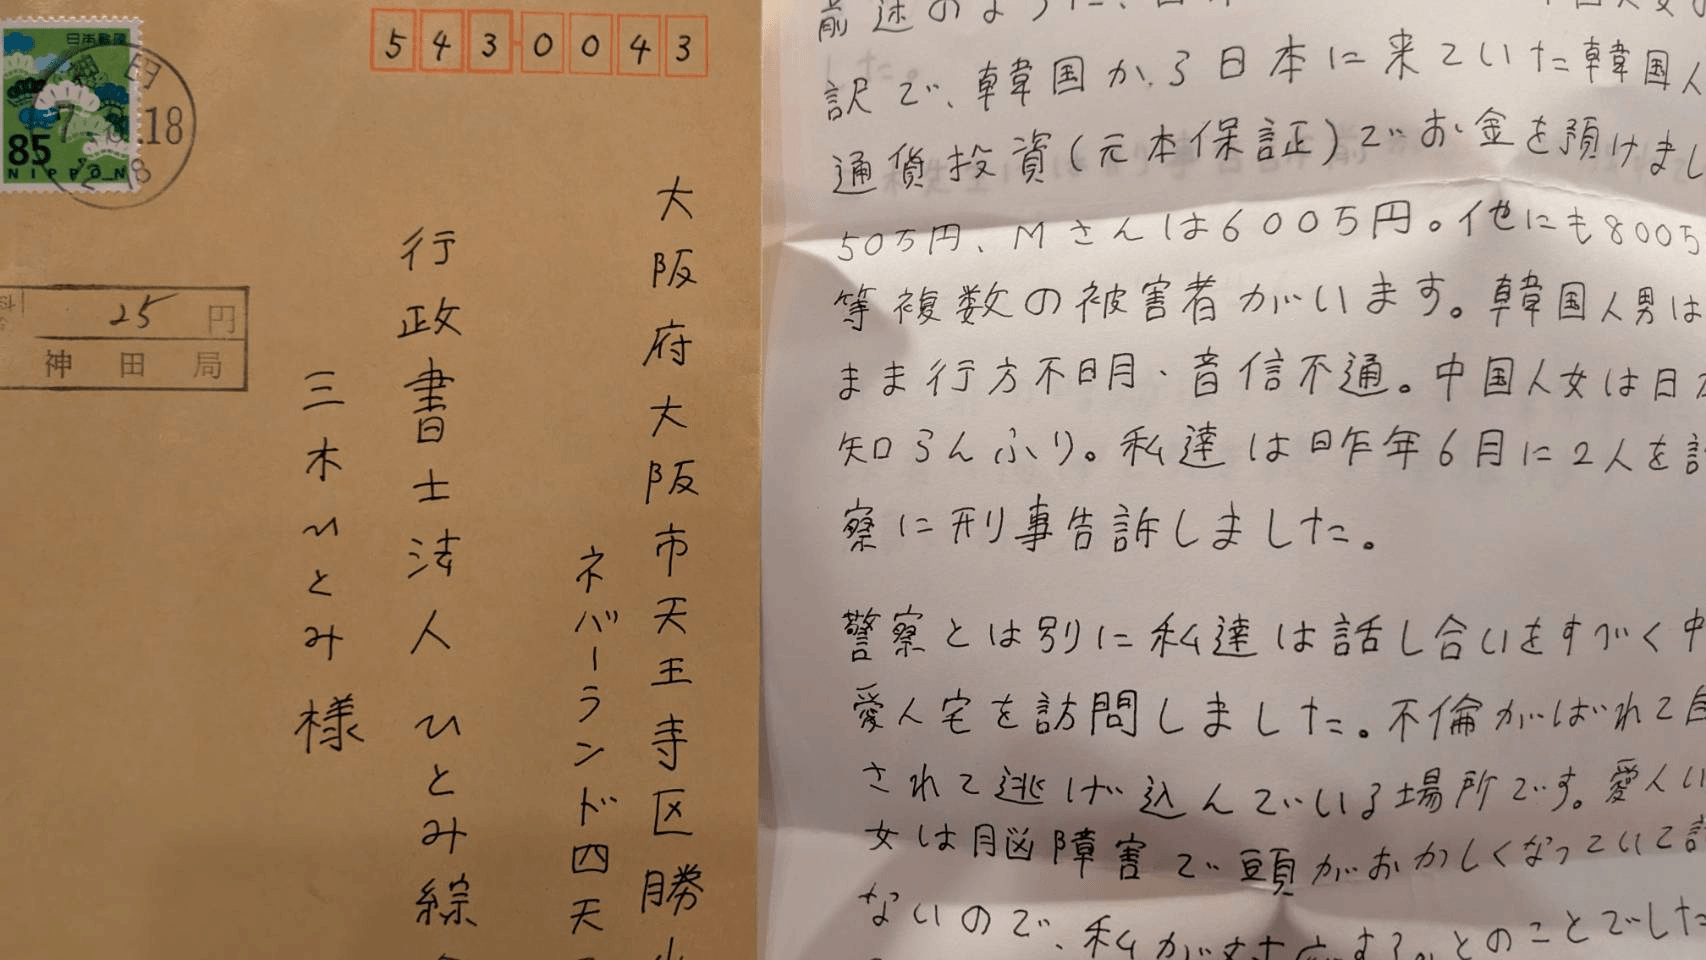 日本郵便
85
NIPPON
18
543-0043
大阪府大阪市天王寺区勝山
ネバーランド四天
行政書士法人ひとみ綜
三木ひとみ様
25円
神田局
前述のように、日本
訳で、韓国から日本に来ていた韓国人
通貨投資(元本保証)でお金を預けまし
50万円、Mさんは600万円。他にも800万
等複数の被害者がいます。韓国人男は
まま行方不明・音信不通。中国人女は日本
知らんふり。私達は昨年6月に2人を詐
察に刑事告訴しました。
警察とは別に私達は話し合いをすべく中
愛人宅を訪問しました。不倫がばれて自
されて逃げ込んでいる場所です。愛人い
女は脳障害で頭がおかしくなっていて話
ないので、私が対応する。とのことでした